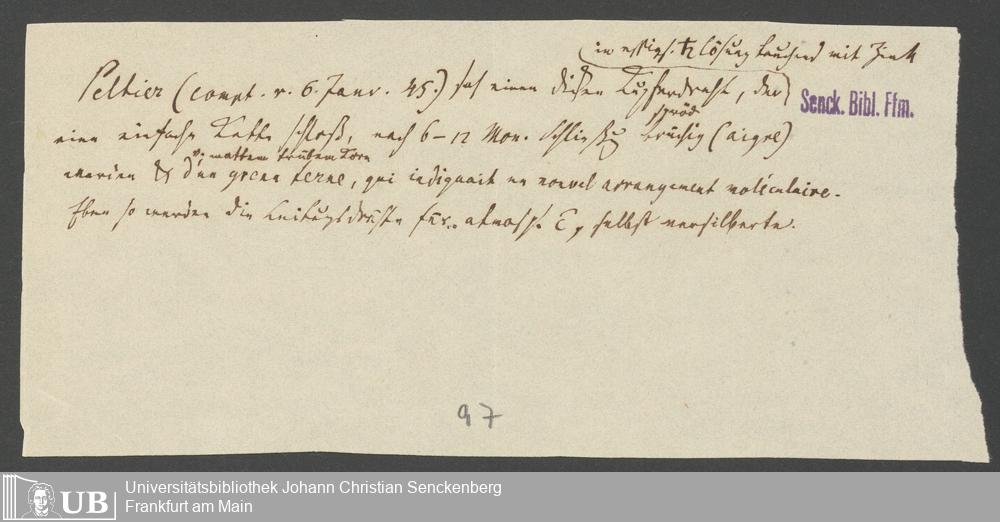 in essigs. ♄lösung tauchend mit Zink
Peltier (compt. r. 6. Janr. 45.) sah einen dicken Kupferdraht, der
Senck. Bibl. Ffm.
spröd
eine einfache Kette schloß, nach 6–12 Mon. brüchig (aigre)
v. mattem trübem Korn
werden & d'un grena terne, qui indiquait un nouvel arrangement moléculaire.
Eben so werden die Leitungsdräthe für atmosph. E, selbst versilberte.
97
UB
Universitätsbibliothek Johann Christian Senckenberg
Frankfurt am Main